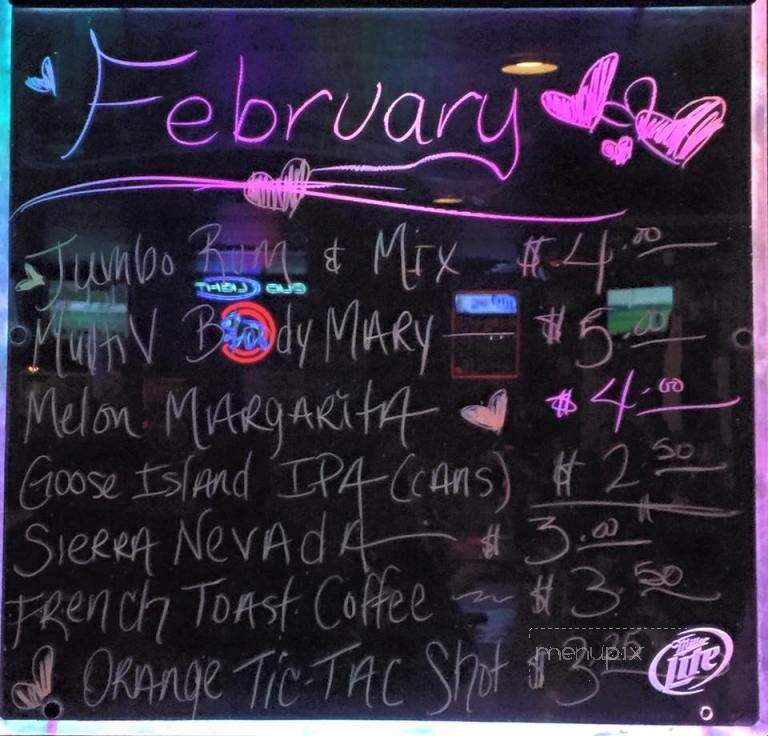 February
Jumbo Rum & Mix $4.00
MultiV Bloody MARY $5.00
Melon MARgARitA $4.00
Goose Island IPA (cans) $2.50
SIERRA NEVAdA $3.00
FRENCH TOAST Coffee $3.50
ORANGE TIC-TAC Shot $3.25
menupix
Miller Lite